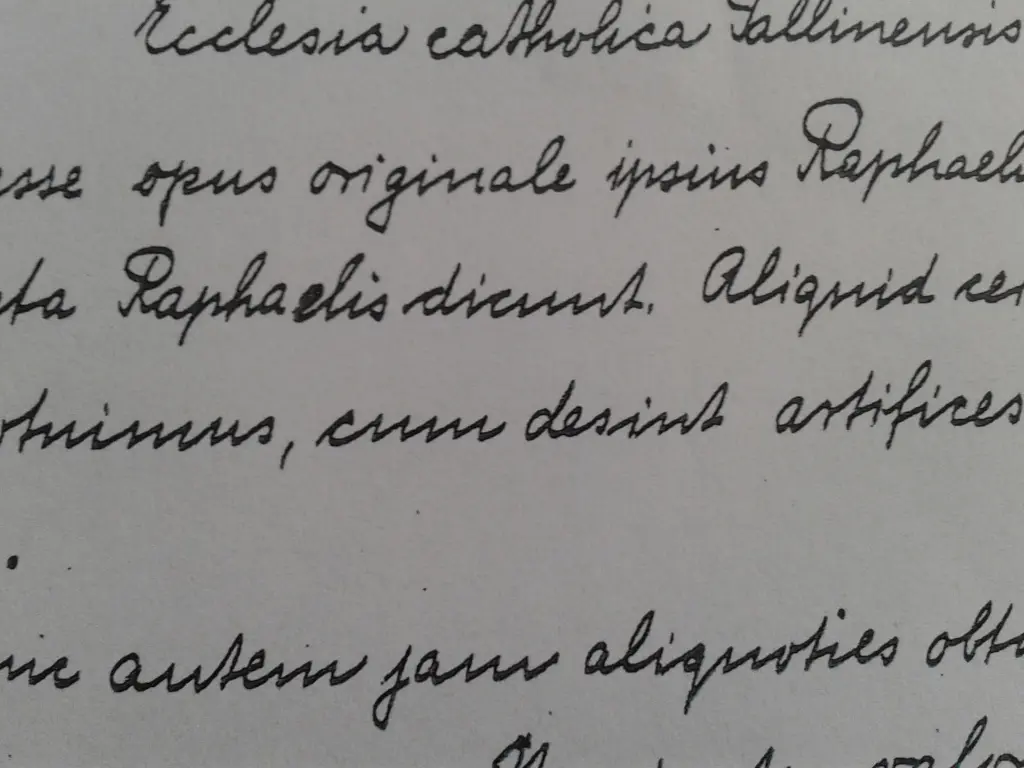 Ecclesia catholica Tallinensis
esse opus originale ipsius Raphaeli
eta Raphaelis dicunt. Aliquid cer
otuimus, cum desint artifices
.
nc autem jam aliquoties obta